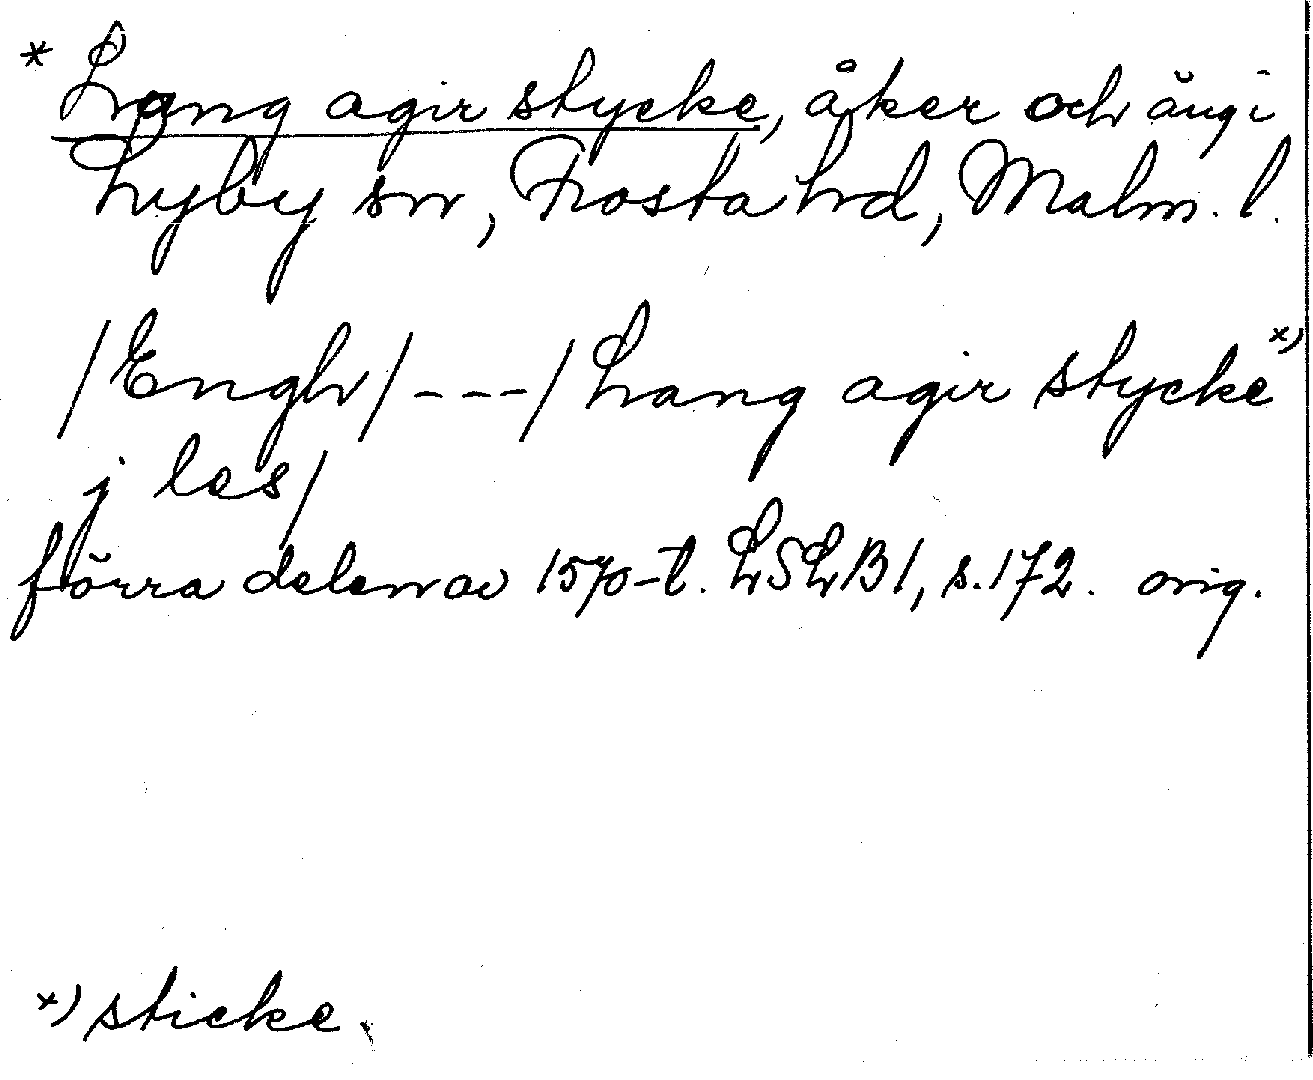 * Lang agir stycke, åker och äng i
Lyby sn, Frosta hd, Malm. l.
/Engh/---/Lang agir stycke x)
j les/
förra delen av 1570-t. LSLB1, s. 172. orig.
x) sticke.